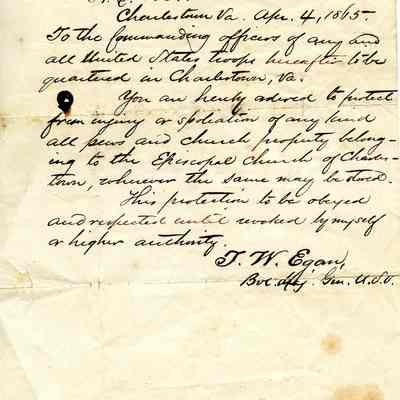 Charlestown Va. Apr. 4, 1865.
To the Commanding officers of any and
all United States troops hereafter to be
quartered in Charlestown, Va.
You are hereby ordered to protect
from injury or spoliation of any kind
all pews and church property belong-
ing to the Episcopal Church of Charles-
town, wherever the same may be stored.
This protection to be obeyed
and respected until revoked by myself
or higher authority.
T. W. Egan,
Bvt. Maj. Gen. U.S.V.